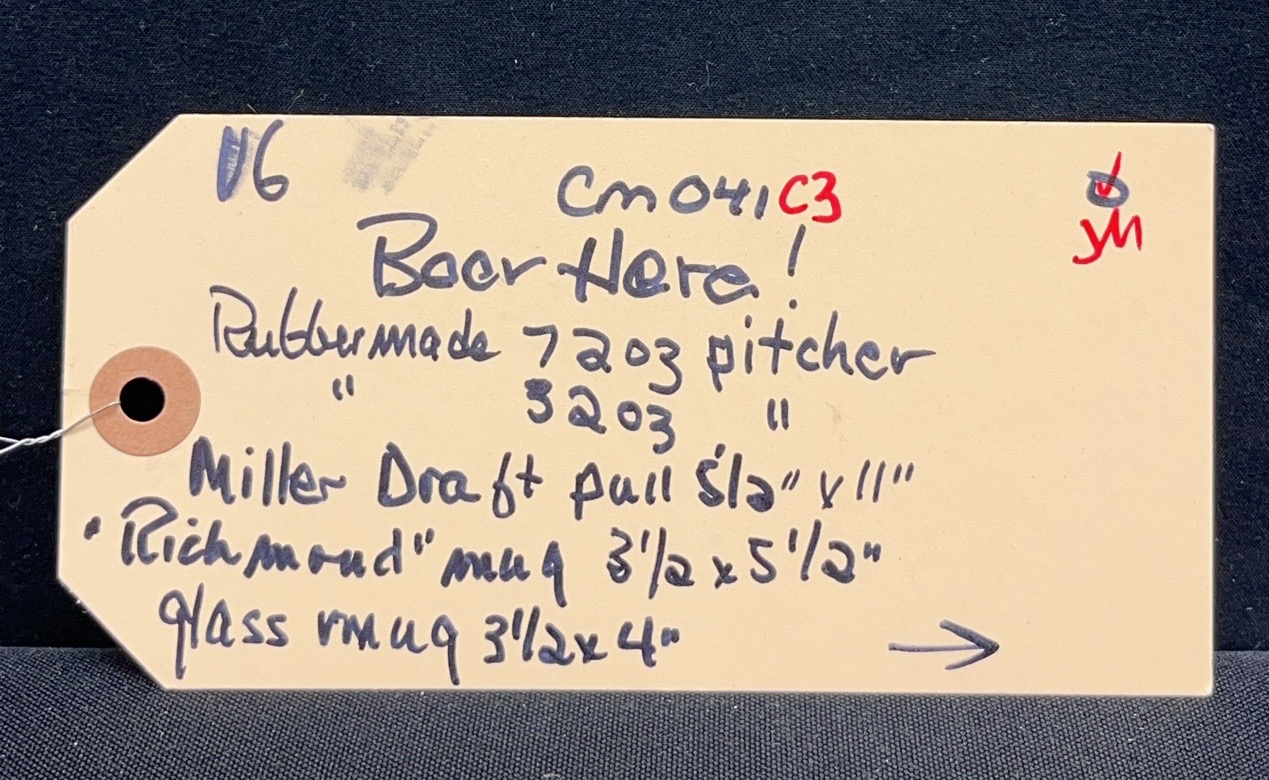 16 Cm041 C3
YM
Beer Here!
Rubbermade 72oz pitcher
" 32oz "
Miller Draft pull 5 1/2" x 11"
"Richmond" mug 3 1/2 x 5 1/2"
glass mug 3 1/2 x 4" →